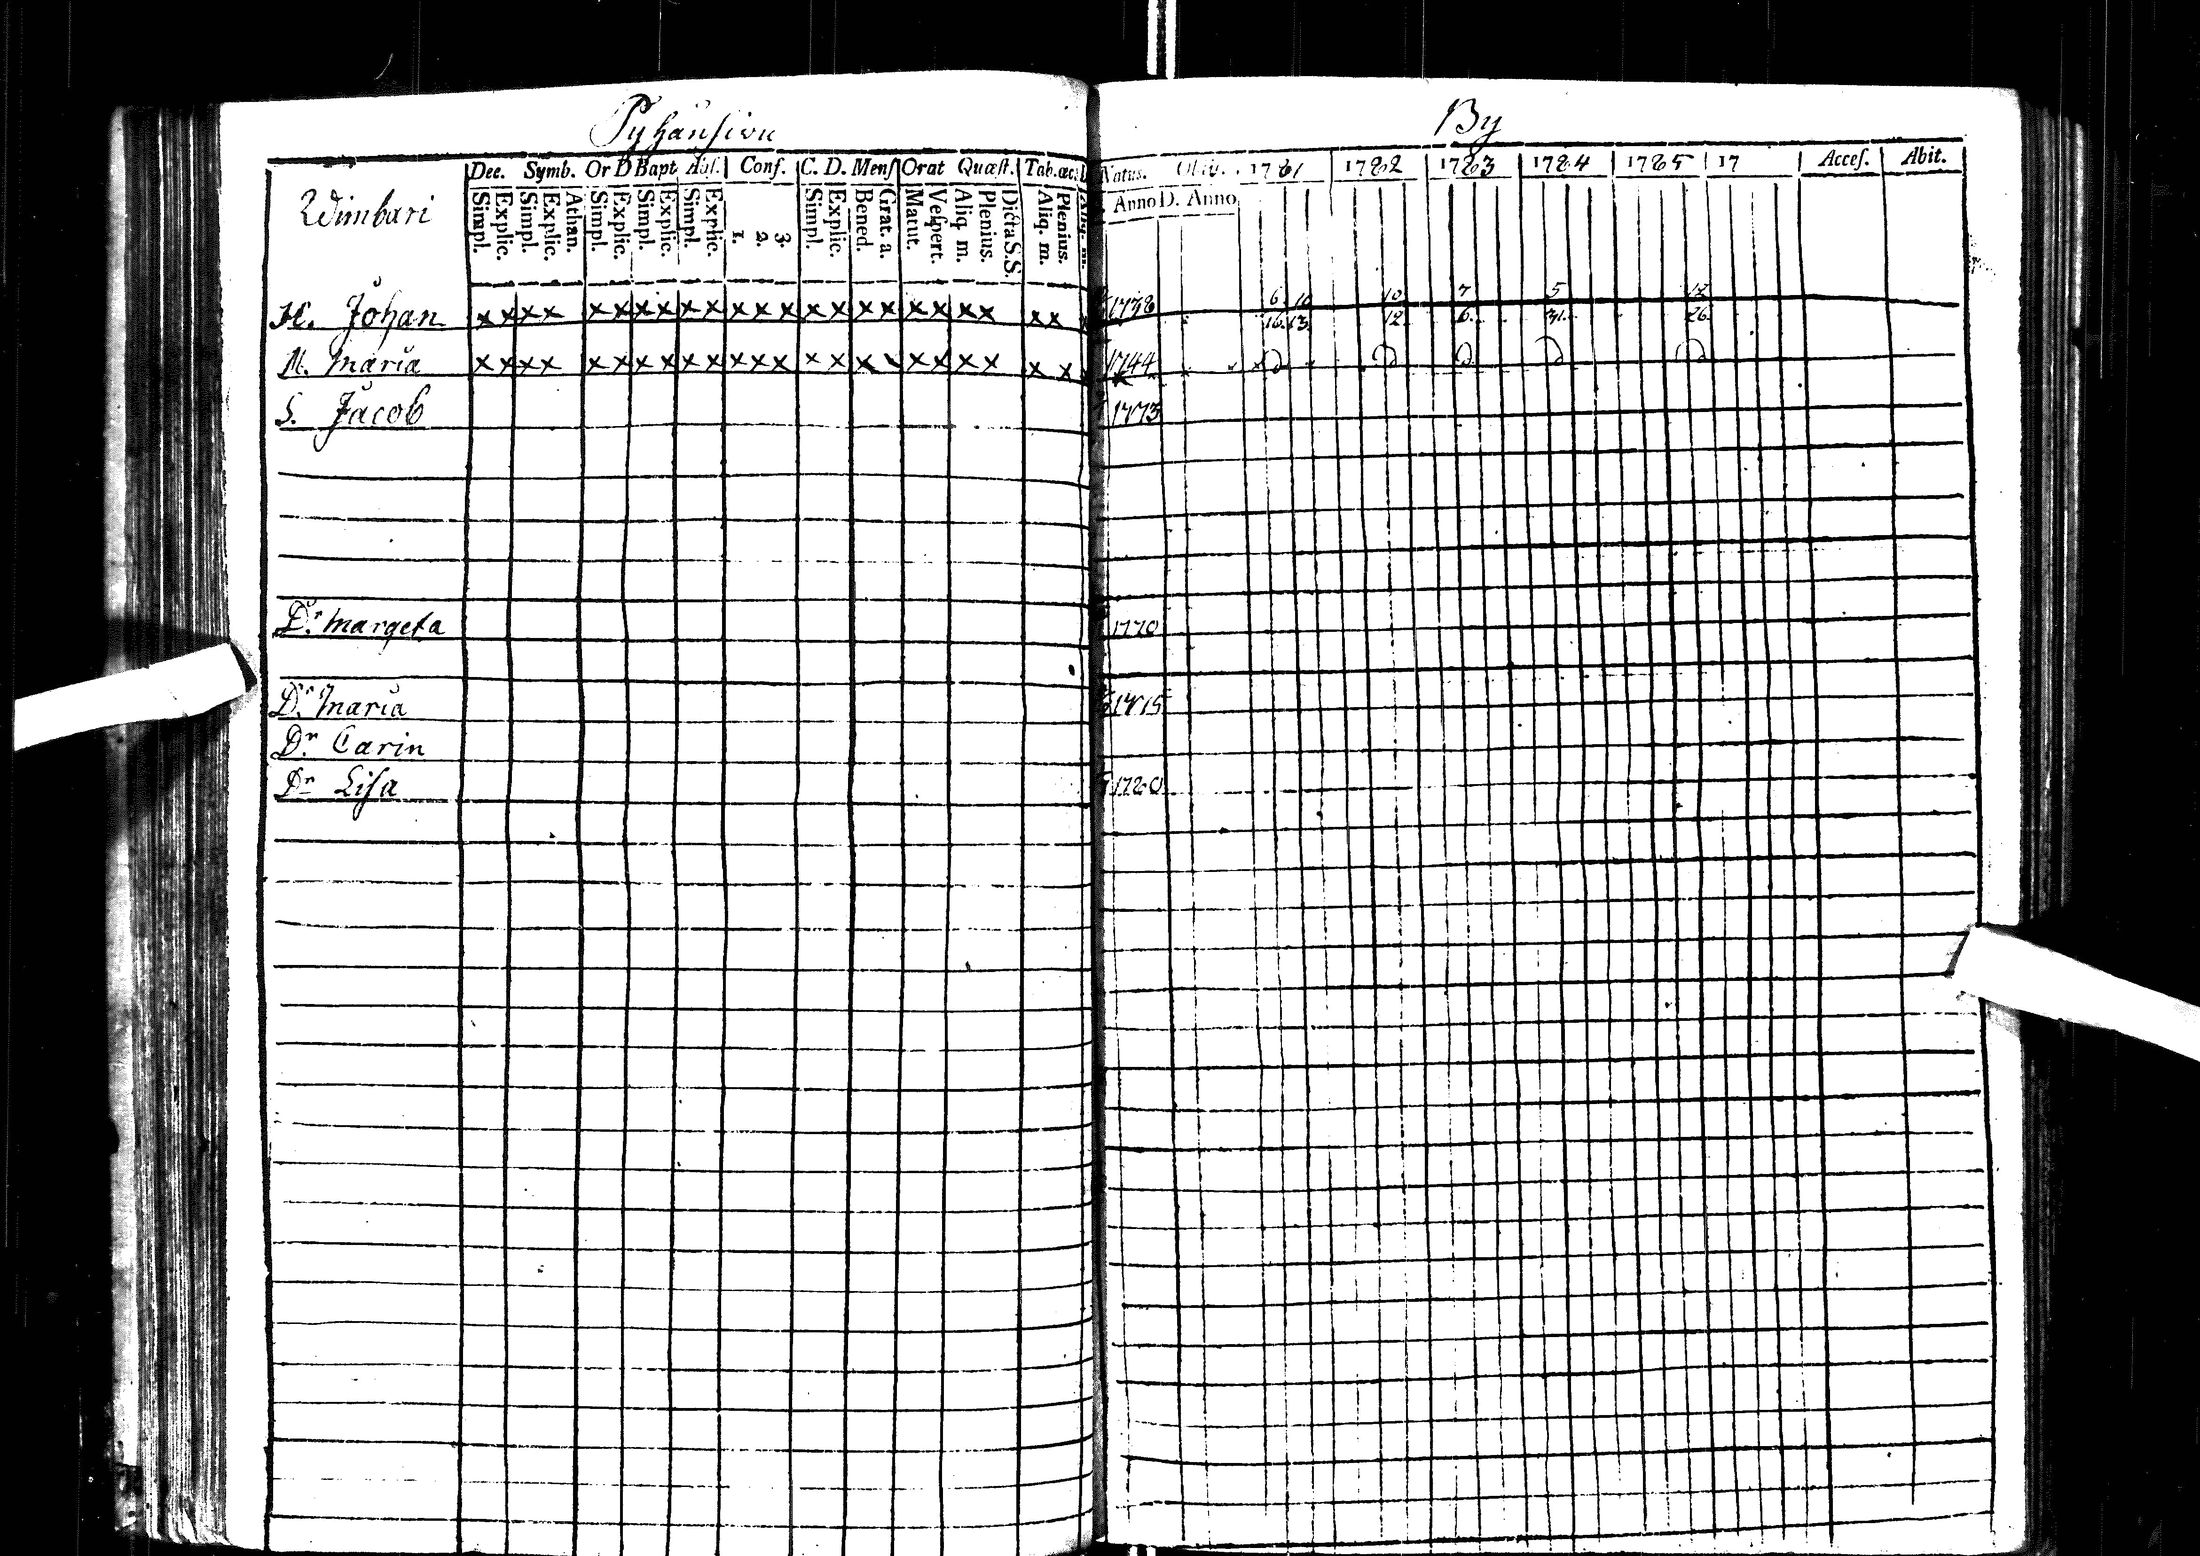 Pyhänsivu
By
Dec. Symb. Or D Bapt Abs. Conf. C. D. Mens Orat Quæst. Tab. œc.
Natus. Obit. 1781 1782 1783 1784 1785 17 Acces. Abit.
Wimbari
Simpl. Explic. Simpl. Explic. Athan. Simpl. Explic. Simpl. Explic. Simpl. Explic. 1. 2. 3. Simpl. Explic. Bened. Grat. a. Matut. Vespert. Aliq. m. Plenius. Dicta S.S. Aliq. m. Plenius.
Anno D. Anno
H. Johan x x x x x x x x x x x x x x x x x x x x x x x 1738 6 10 10 7 5 12
16. 13. 12. 6. 31. 26.
M. Maria x x x x x x x x x x x x x x x x x x x x x x 1744
S. Jacob 1773
Dr. Margeta 1770
Dr. Maria 1775
Dr. Carin
Dr. Lisa 1780